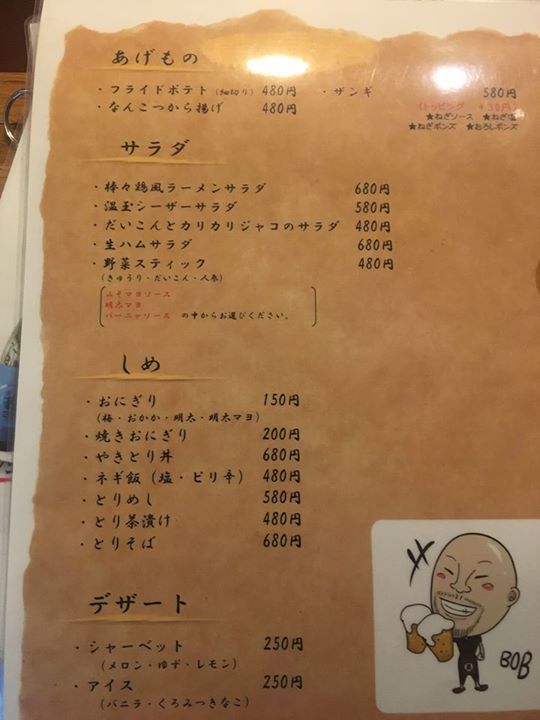 あげもの
・フライドポテト（細切り） 480円 ・ザンギ 580円
・なんこつから揚げ 480円 （トッピング ＋30円）
★ねぎソース ★ねぎ塩
★ねぎポンズ ★おろしポンズ
サラダ
・棒々鶏風ラーメンサラダ 680円
・温玉シーザーサラダ 580円
・だいこんとカリカリジャコのサラダ 480円
・生ハムサラダ 680円
・野菜スティック 480円
（きゅうり・だいこん・人参）
みそマヨソース
明太マヨ
バーニャソース の中からお選びください。
しめ
・おにぎり 150円
（梅・おかか・明太・明太マヨ）
・焼きおにぎり 200円
・やきとり丼 680円
・ネギ飯（塩・ピリ辛） 480円
・とりめし 580円
・とり茶漬け 480円
・とりそば 680円
デザート
・シャーベット 250円
（メロン・ゆず・レモン）
・アイス 250円
（バニラ・くろみつきなこ）
BOB